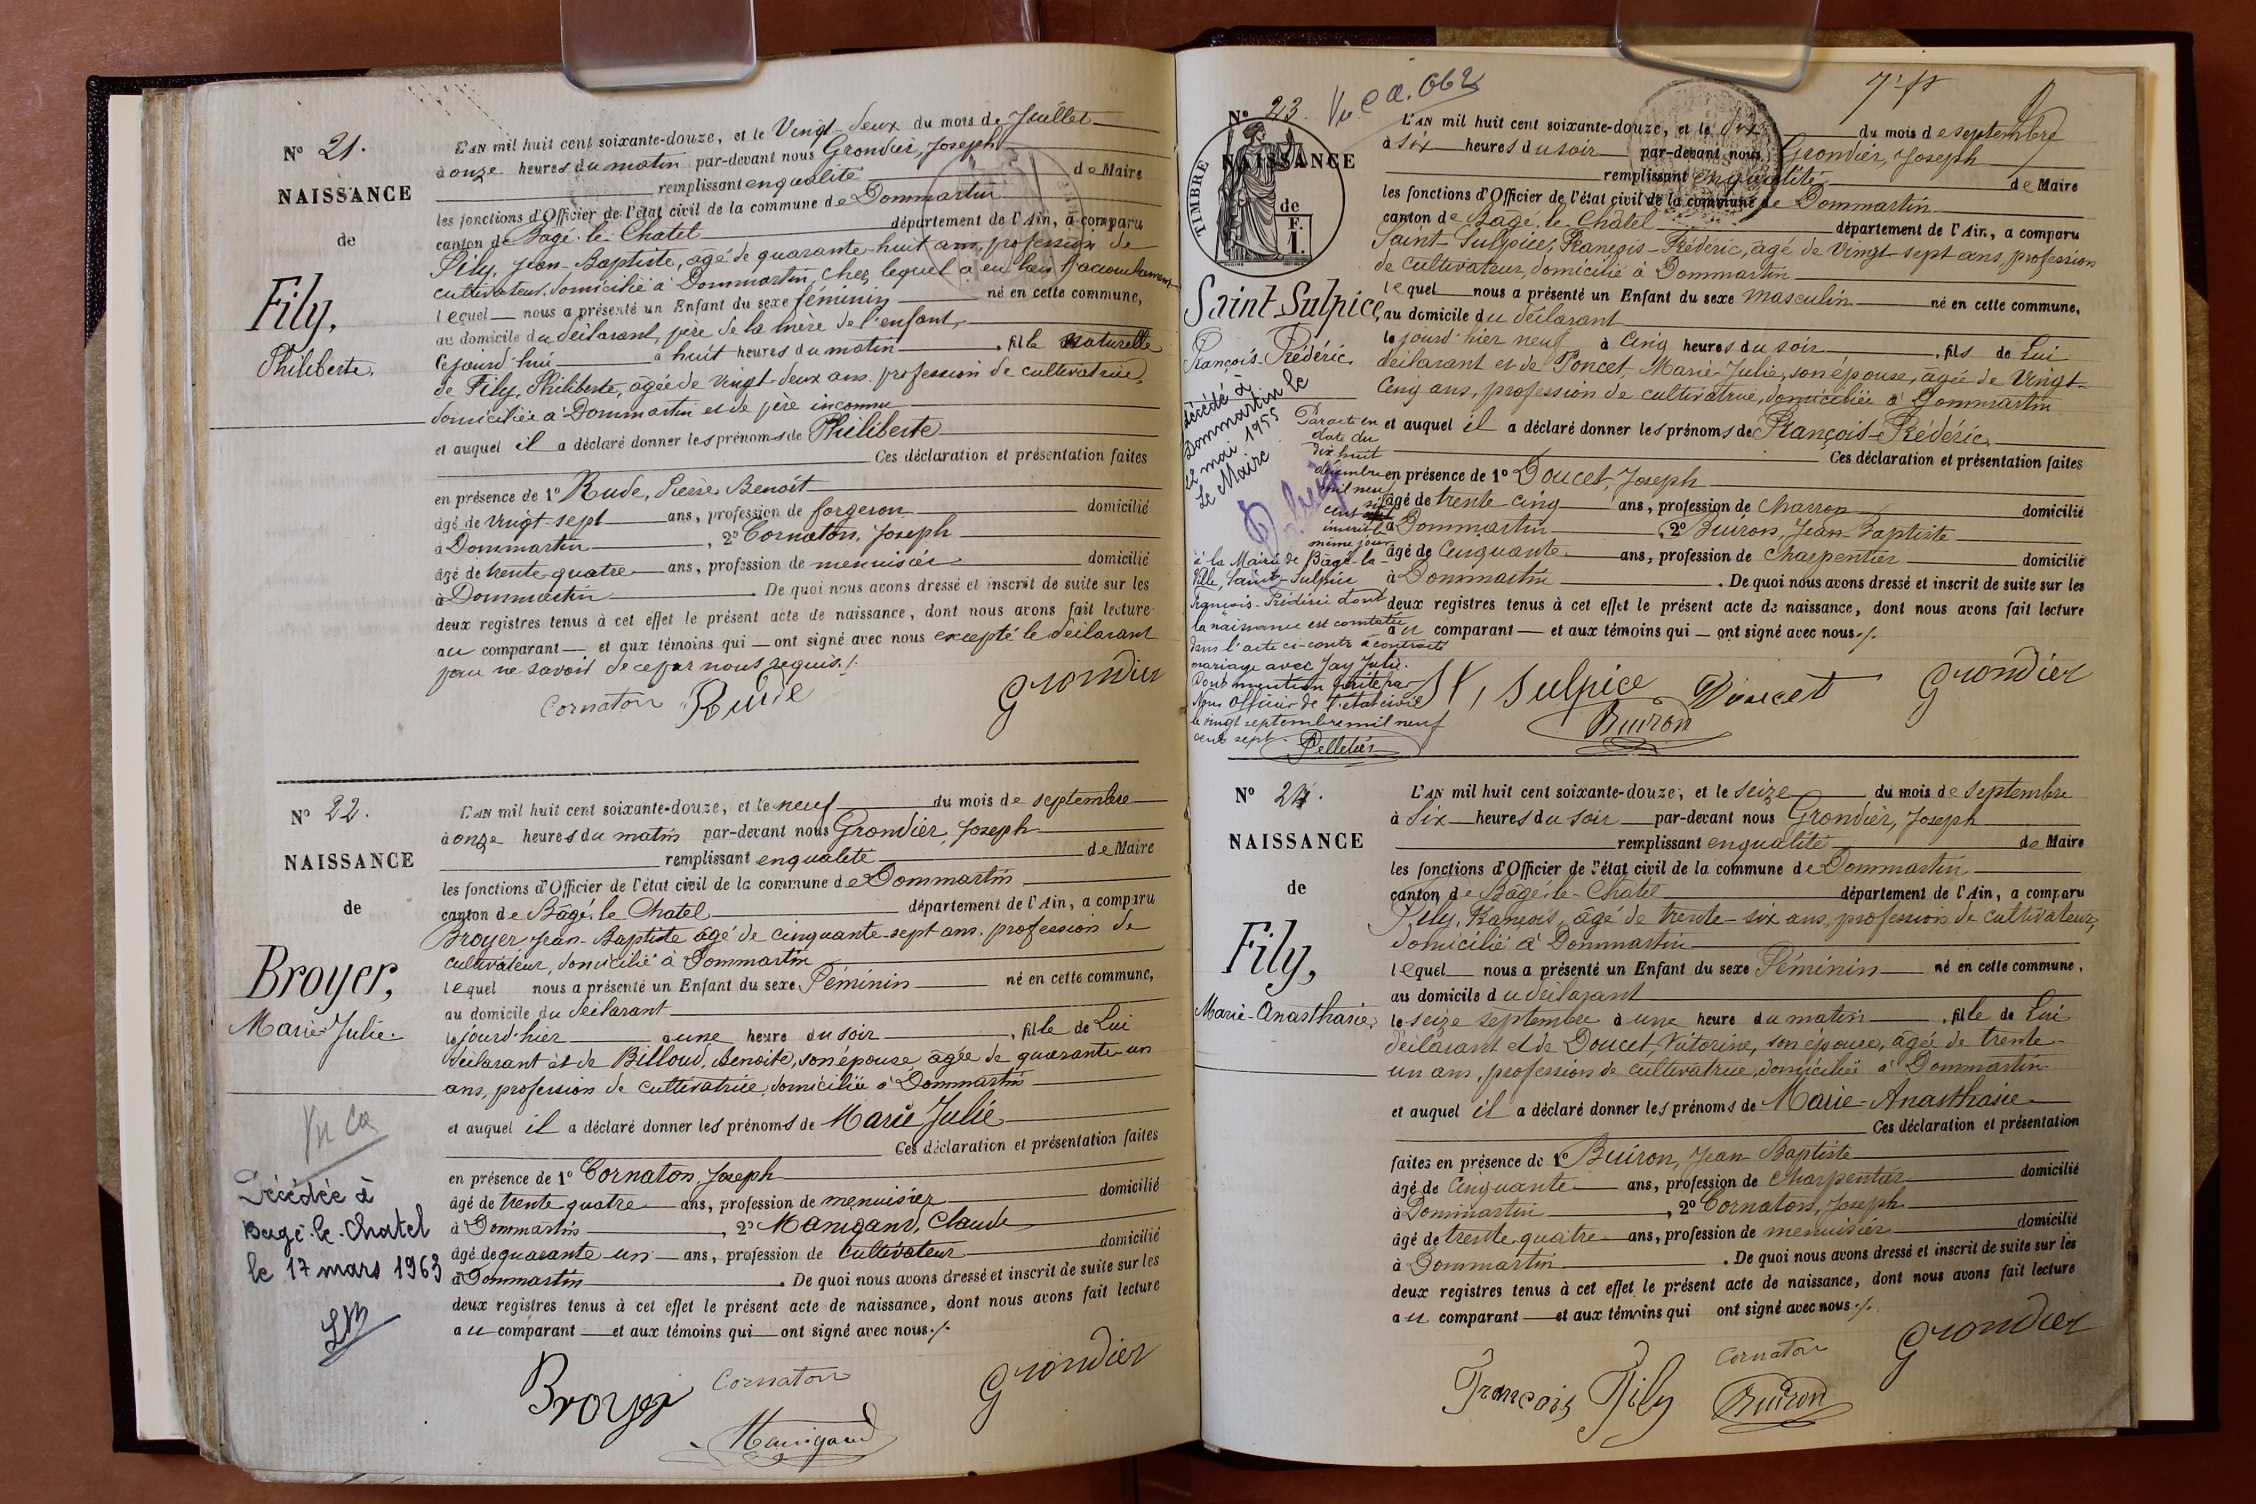 N° 21.
NAISSANCE
de
Fily,
Philiberte
L'AN mil huit cent soixante-douze, et le Vingt-deux du mois de Juillet
à onze heures du matin par-devant nous Grondier, Joseph
remplissant en qualité de Maire
les fonctions d'Officier de l'état civil de la commune de Dommartin
canton de Bagé-le-Chatel département de l'Ain, a comparu
Fily, Jean-Baptiste, âgé de quarante-huit ans, profession de
cultivateur, domicilié à Dommartin, chez lequel a eu lieu l'accouchement
lequel nous a présenté un Enfant du sexe féminin né en cette commune,
au domicile du déclarant, père de la mère de l'enfant,
cejourd'hui à huit heures du matin, fille naturelle
de Fily, Philiberte, âgée de vingt-deux ans, profession de cultivatrice,
domiciliée à Dommartin et de père inconnu
et auquel il a déclaré donner les prénoms de Philiberte
Ces déclaration et présentation faites
en présence de 1° Rude, Pierre Benoît
âgé de vingt-sept ans, profession de forgeron domicilié
à Dommartin, 2° Cornaton, Joseph
âgé de trente-quatre ans, profession de menuisier domicilié
à Dommartin. De quoi nous avons dressé et inscrit de suite sur les
deux registres tenus à cet effet le présent acte de naissance, dont nous avons fait lecture
au comparant et aux témoins qui ont signé avec nous excepté le déclarant
pour ne savoir de ce par nous requis./.
Cornaton Rude Grondier
N° 22.
NAISSANCE
de
Broyer,
Marie Julie
Vu Ca
Décédée à
Bagé-le-Chatel
le 17 mars 1963
L'AN mil huit cent soixante-douze, et le neuf du mois de septembre
à onze heures du matin par-devant nous Grondier, Joseph
remplissant en qualité de Maire
les fonctions d'Officier de l'état civil de la commune de Dommartin
canton de Bâgé-le-Chatel département de l'Ain, a comparu
Broyer, Jean-Baptiste âgé de cinquante-sept ans, profession de
cultivateur, domicilié à Dommartin
lequel nous a présenté un Enfant du sexe Féminin né en cette commune,
au domicile du déclarant
le jourd'hier à une heure du soir, fille de Lui
déclarant et de Billoud, Benoite, son épouse âgée de quarante-un
ans, profession de cultivatrice, domiciliée à Dommartin
et auquel il a déclaré donner les prénoms de Marie Julie
Ces déclaration et présentation faites
en présence de 1° Cornaton, Joseph
âgé de trente quatre ans, profession de menuisier domicilié
à Dommartin, 2° Manigand, Claude
âgé de quarante-un ans, profession de cultivateur domicilié
à Dommartin. De quoi nous avons dressé et inscrit de suite sur les
deux registres tenus à cet effet le présent acte de naissance, dont nous avons fait lecture
au comparant et aux témoins qui ont signé avec nous./.
Broyer Cornaton Grondier
Manigand
N° 23.
TIMBRE
de
F.
1.
NAISSANCE
Saint-Sulpice,
François-Frédéric.
décédé à
Dommartin le
22 mai 1955
Le Maire
Par acte en
date du
dix huit
décembre
mil neuf
cent six
inscrit le
même jour
à la Mairie de Bagé-la-
Ville, Saint-Sulpice
François-Frédéric dont
la naissance est constatée
dans l'acte ci-contre a contracté
mariage avec Jay Julie.
Dont mention faite par
Nous Officier de l'état civil
le vingt septembre mil neuf
cent sept. Pelletier
L'AN mil huit cent soixante-douze, et le dix du mois de septembre
à six heures du soir par-devant nous Grondier, Joseph
remplissant en qualité de Maire
les fonctions d'Officier de l'état civil de la commune de Dommartin
canton de Bagé-le-Châtel département de l'Ain, a comparu
Saint-Sulpice, François-Frédéric, âgé de vingt-sept ans, profession
de cultivateur, domicilié à Dommartin
lequel nous a présenté un Enfant du sexe masculin né en cette commune,
au domicile du déclarant
le jourd'hier neuf à cinq heures du soir, fils de Lui
déclarant et de Poncet, Marie-Julie, son épouse, âgée de vingt-
cinq ans, profession de cultivatrice, domiciliée à Dommartin
et auquel il a déclaré donner les prénoms de François-Frédéric
Ces déclaration et présentation faites
en présence de 1° Doucet, Joseph
âgé de trente-cinq ans, profession de charron domicilié
à Dommartin, 2° Buiron, Jean-Baptiste
âgé de cinquante ans, profession de charpentier domicilié
à Dommartin. De quoi nous avons dressé et inscrit de suite sur les
deux registres tenus à cet effet le présent acte de naissance, dont nous avons fait lecture
au comparant et aux témoins qui ont signé avec nous./.
St, Sulpice Doucet Grondier
Buiron
N° 24.
NAISSANCE
de
Fily,
Marie-Anasthasie,
L'AN mil huit cent soixante-douze, et le seize du mois de septembre
à six heures du soir par-devant nous Grondier, Joseph
remplissant en qualité de Maire
les fonctions d'Officier de l'état civil de la commune de Dommartin
canton de Bâgé-le-Chatel département de l'Ain, a comparu
Fily, François, âgé de trente-six ans, profession de cultivateur,
domicilié à Dommartin
lequel nous a présenté un Enfant du sexe Féminin né en cette commune,
au domicile du déclarant
le seize septembre à une heure du matin, fille de Lui
déclarant et de Doucet, Victorine, son épouse, âgée de trente-
un ans, profession de cultivatrice, domiciliée à Dommartin
et auquel il a déclaré donner les prénoms de Marie-Anasthasie
Ces déclaration et présentation
faites en présence de 1° Buiron, Jean-Baptiste
âgé de cinquante ans, profession de charpentier domicilié
à Dommartin, 2° Cornaton, Joseph
âgé de trente-quatre ans, profession de menuisier domicilié
à Dommartin. De quoi nous avons dressé et inscrit de suite sur les
deux registres tenus à cet effet le présent acte de naissance, dont nous avons fait lecture
au comparant et aux témoins qui ont signé avec nous./.
François Fily Cornaton Grondier
Buiron